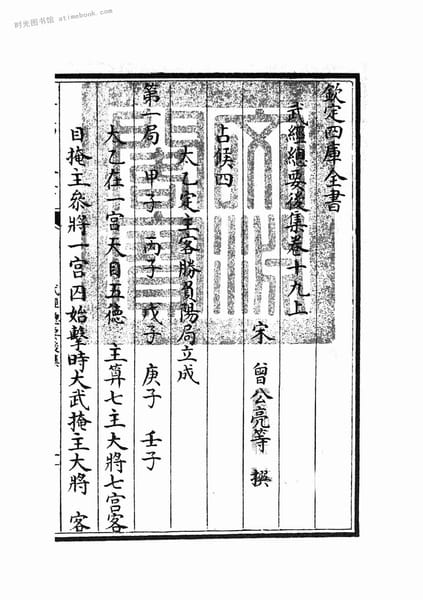 时光图书馆 atimebook.com
欽定四庫全書
武經總要後集卷十九上
宋 曾公亮等 撰
占候四
太乙定主客勝負陽局立成
第一局 甲子 丙子 戊子 庚子 壬子
太乙在一宫天目五德 主算七主大將七宫客
目掩主參將一宫囚始擊時大武掩主大將 客